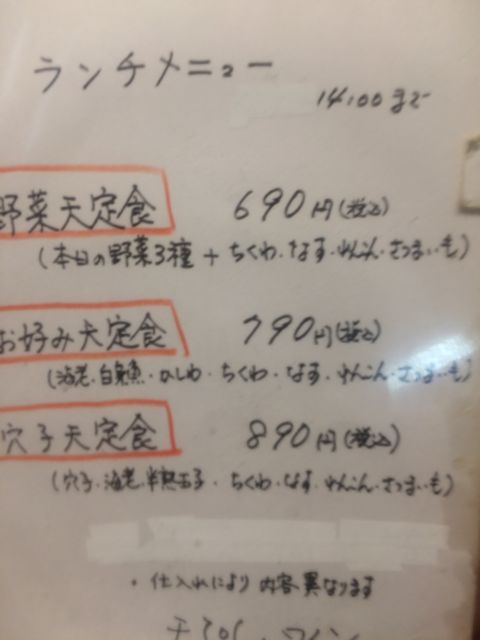 ランチメニュー
14:00まで
野菜天定食 690円(税込)
(本日の野菜3種+ちくわ・なす・れんこん・さつまいも)
お好み天定食 790円(税込)
(海老・白身魚・いしわ・ちくわ・なす・れんこん・さつまいも)
穴子天定食 890円(税込)
(穴子・海老・半熟玉子・ちくわ・なす・れんこん・さつまいも)
・仕入れにより内容異なります